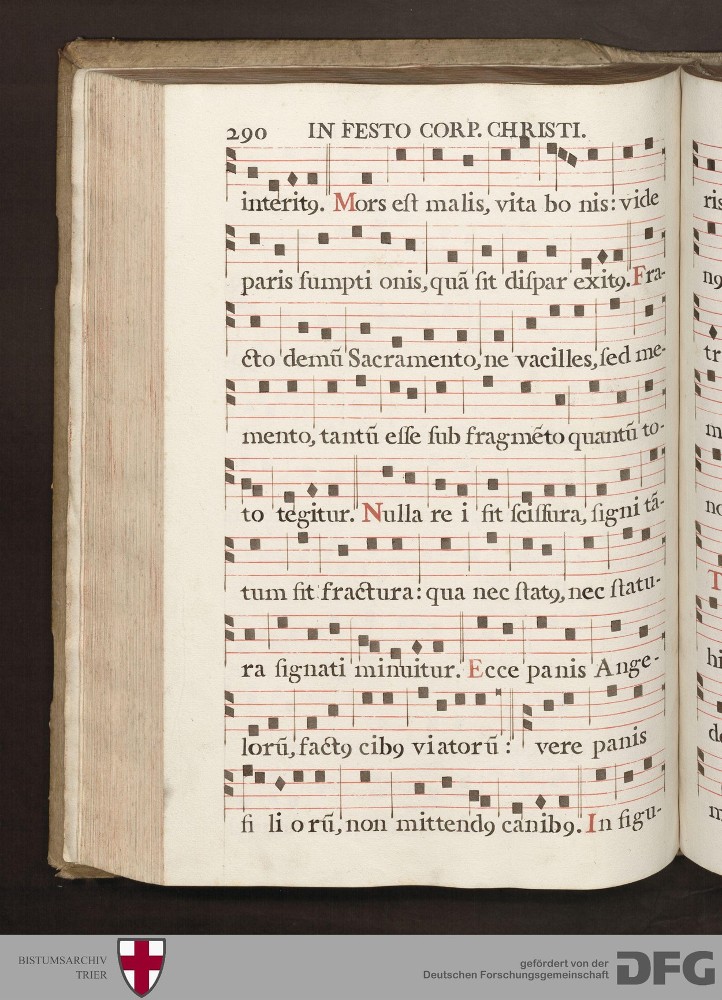 290 IN FESTO CORP. CHRISTI.
interitꝯ. Mors eſt malis, vita bo nis: vide
paris ſumpti onis, quã ſit diſpar exitꝯ. Fra-
cto demũ Sacramento, ne vacilles, ſed me-
mento, tantũ eſſe ſub fragmẽto quantũ to-
to tegitur. Nulla re i ſit ſciſſura, ſigni tã-
tum fit fractura: qua nec ſtatꝯ, nec ſtatu-
ra ſignati minuitur. Ecce panis Ange-
lorũ, factꝯ cibꝯ viatorũ: vere panis
fi li o rũ, non mittendꝯ canibꝯ. In figu-
ris
nꝯ
tr
m
no
T
hi
de
m
BISTUMSARCHIV
TRIER
gefördert von der
Deutschen Forschungsgemeinschaft
DFG